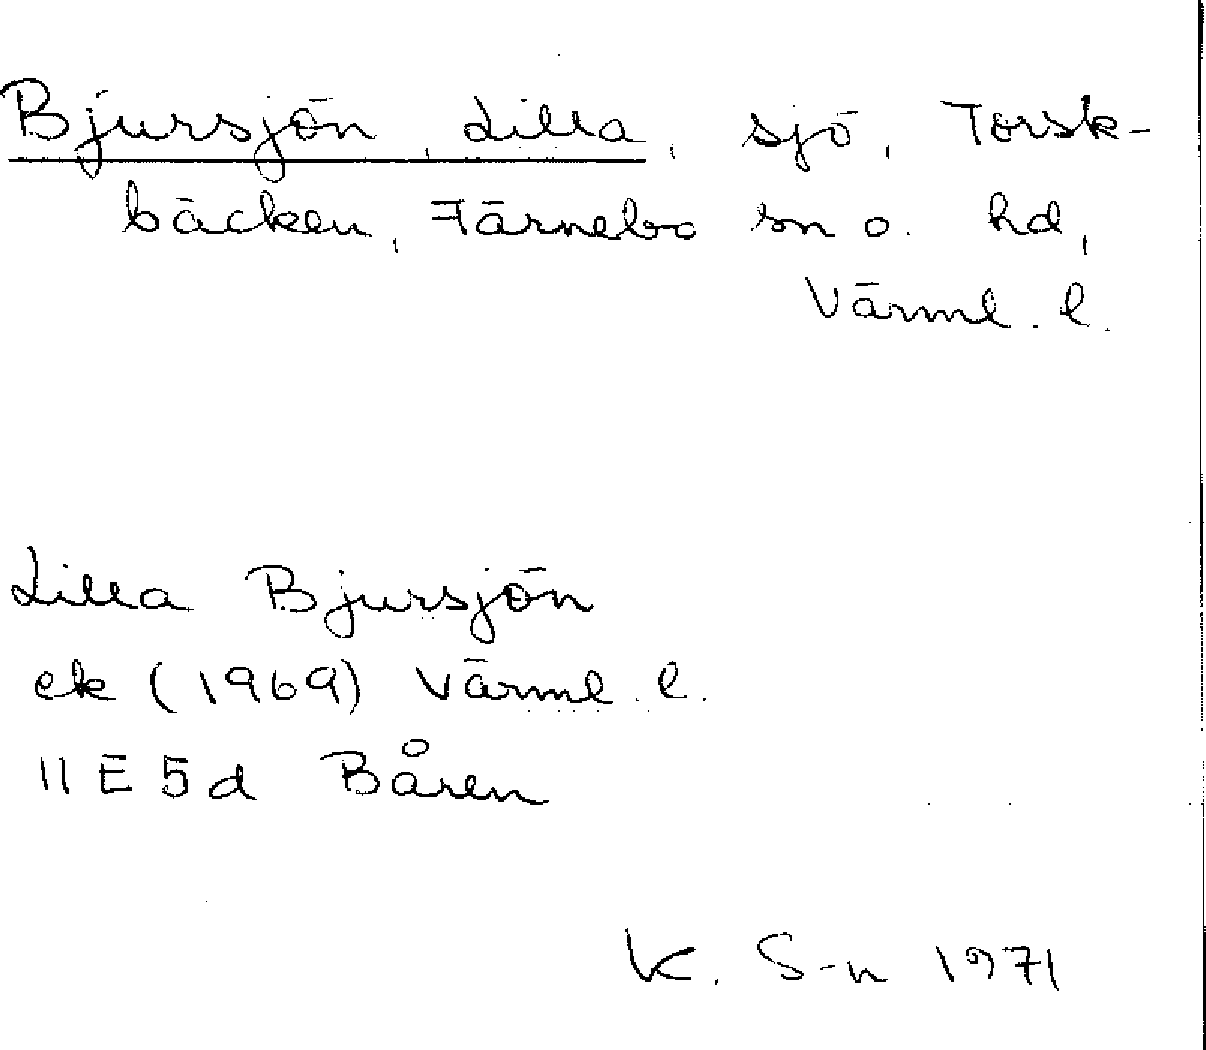 Bjursjön, Lilla, sjö, Torsk-
bäcken, Färnebo sn o. hd,
Värml. l.
Lilla Bjursjön
ek (1969) Värml. l.
11 E 5 d Båren
K. S-n 1971